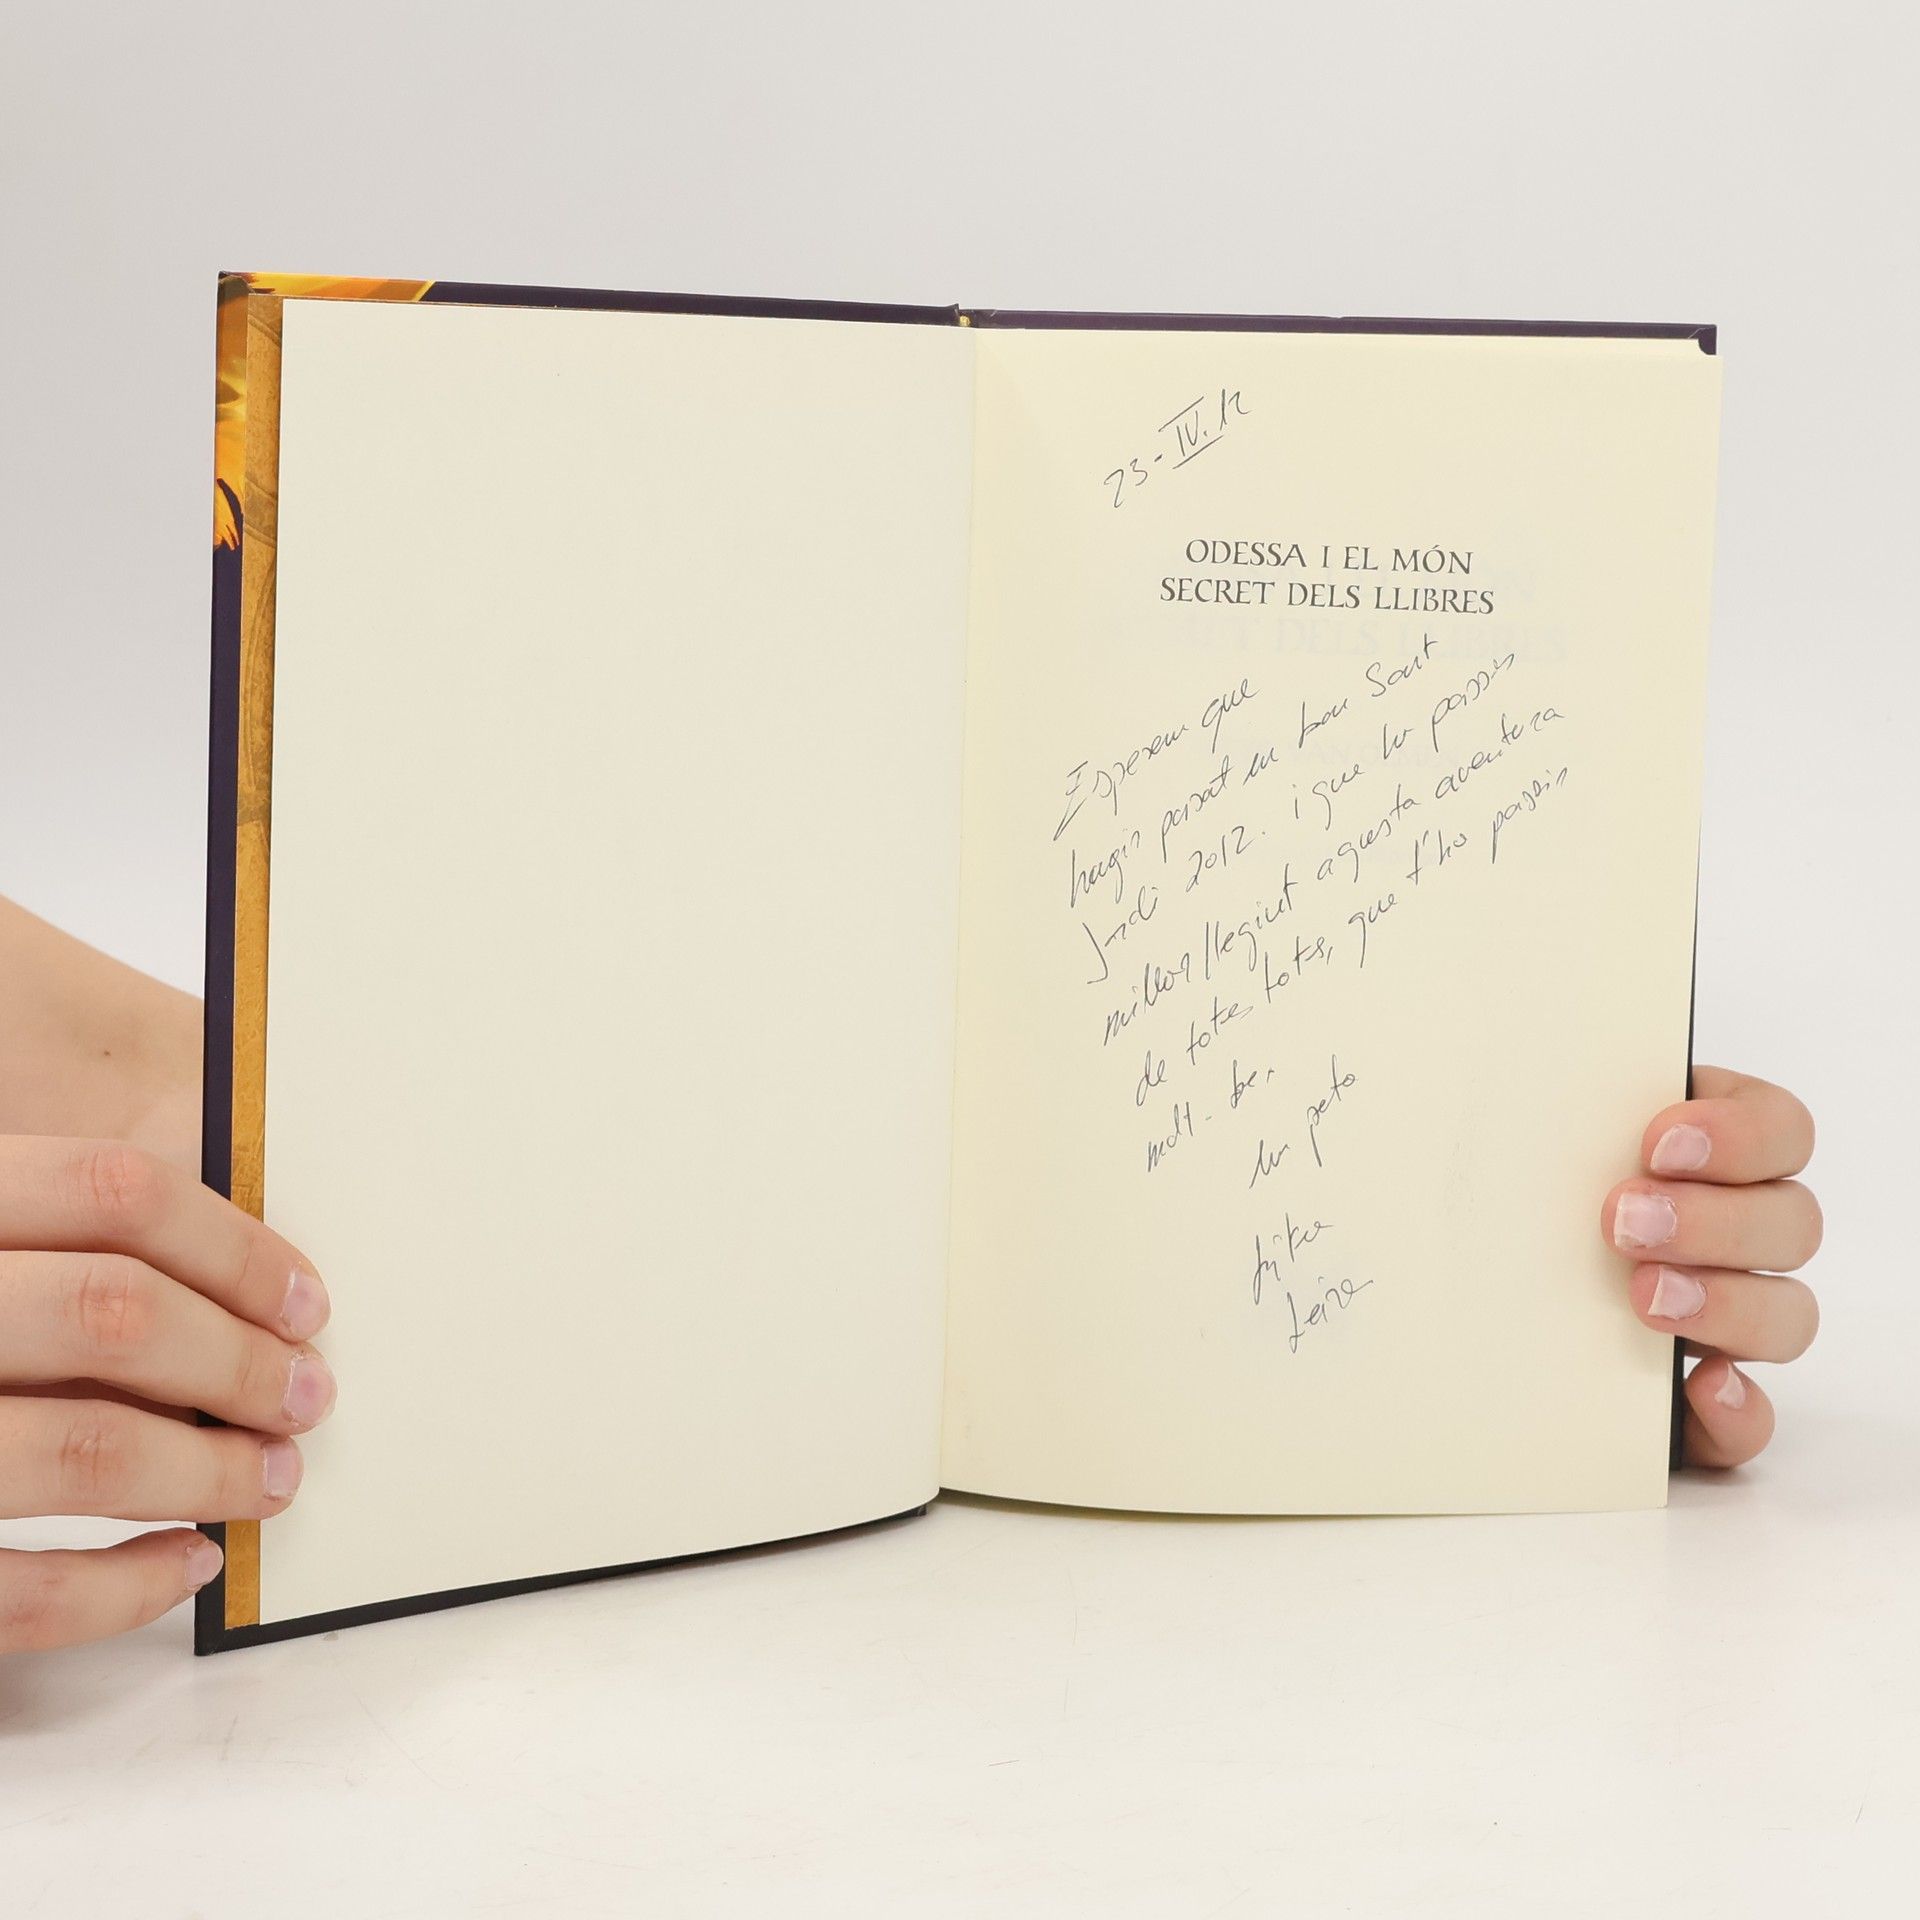 23-IV.12
ODESSA I EL MÓN
SECRET DELS LLIBRES
Esperem que
hagis passat un bon Sant
Jordi 2012. i que ho passes
millor llegint aquesta aventura
de totes totes, que t'ho passis
molt be.
Un peto
Leire